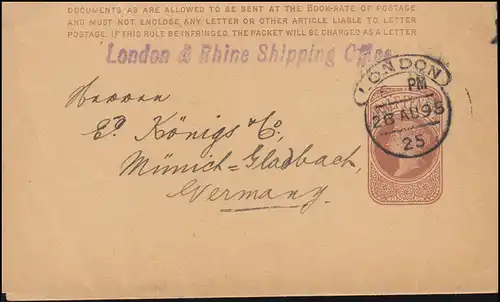 DOCUMENTS, AS ARE ALLOWED TO BE SENT AT THE BOOK-RATE OF POSTAGE
AND MUST NOT ENCLOSE ANY LETTER OR OTHER ARTICLE LIABLE TO LETTER
POSTAGE. IF THIS RULE BE INFRINGED, THE PACKET WILL BE CHARGED AS A LETTER
London & Rhine Shipping Office
LONDON
PM
28 AU 95
25
Herren
Ed Königs & Co,
Münich-Gladbach,
Germany.